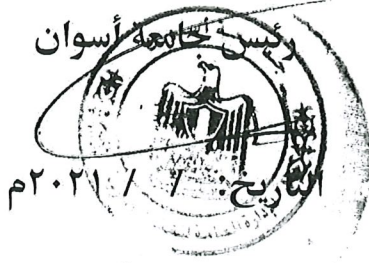 رئيس جامعة أسوان
التاريخ: / / ٢٠٢١م